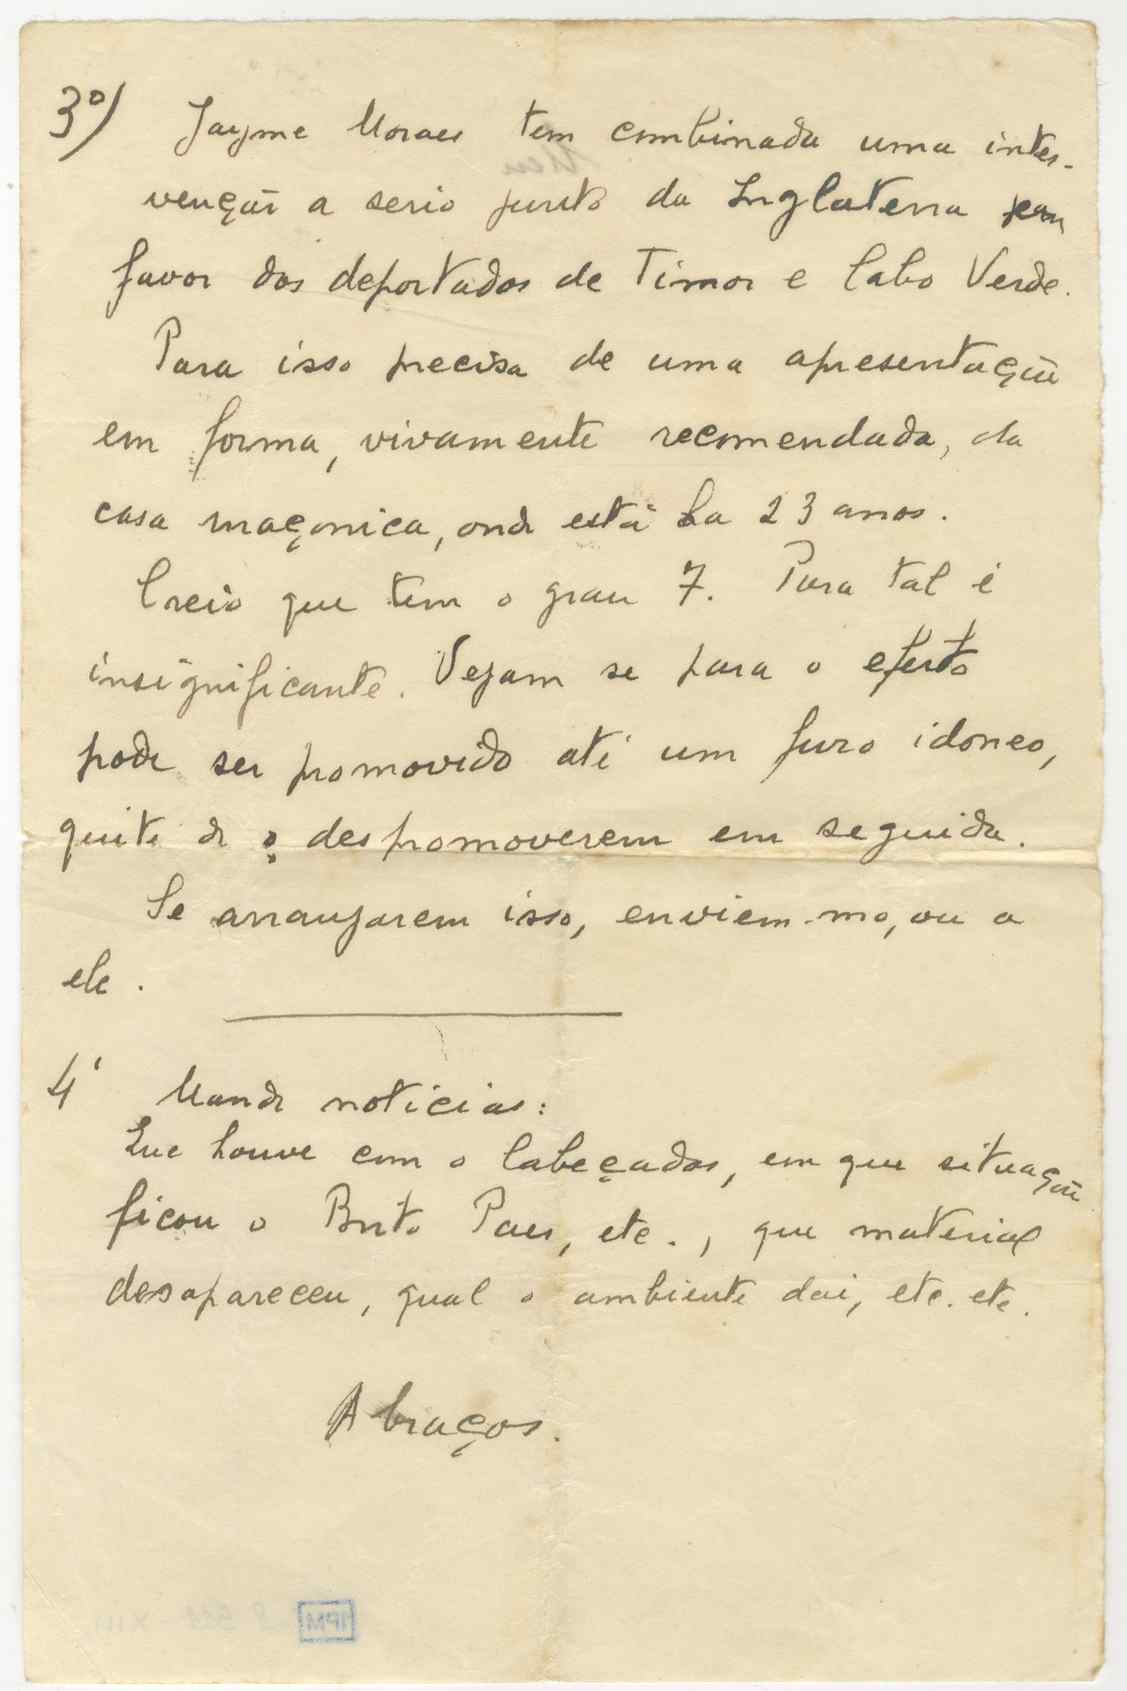 3º) Jayme Moraes tem combinada uma inter-
venção a serio junto da Inglaterra para
favor dos deportados de Timor e Cabo Verde.
Para isso precisa de uma apresentação
em forma, vivamente recomendada, da
casa maçonica, onde está ha 23 anos.
Creio que tem o grau 7. Para tal é
insignificante. Vejam se para o efeito
pode ser promovido até um furo idoneo,
quite de o despromoverem em seguida.
Se arranjarem isso, enviem-mo, ou a
ele.
4º Mande noticias:
Que houve com o Cabeçadas, em que situação
ficou o Brito Paes, etc., que material
desapareceu, qual o ambiente dai, etc. etc.
Abraços.
IPM